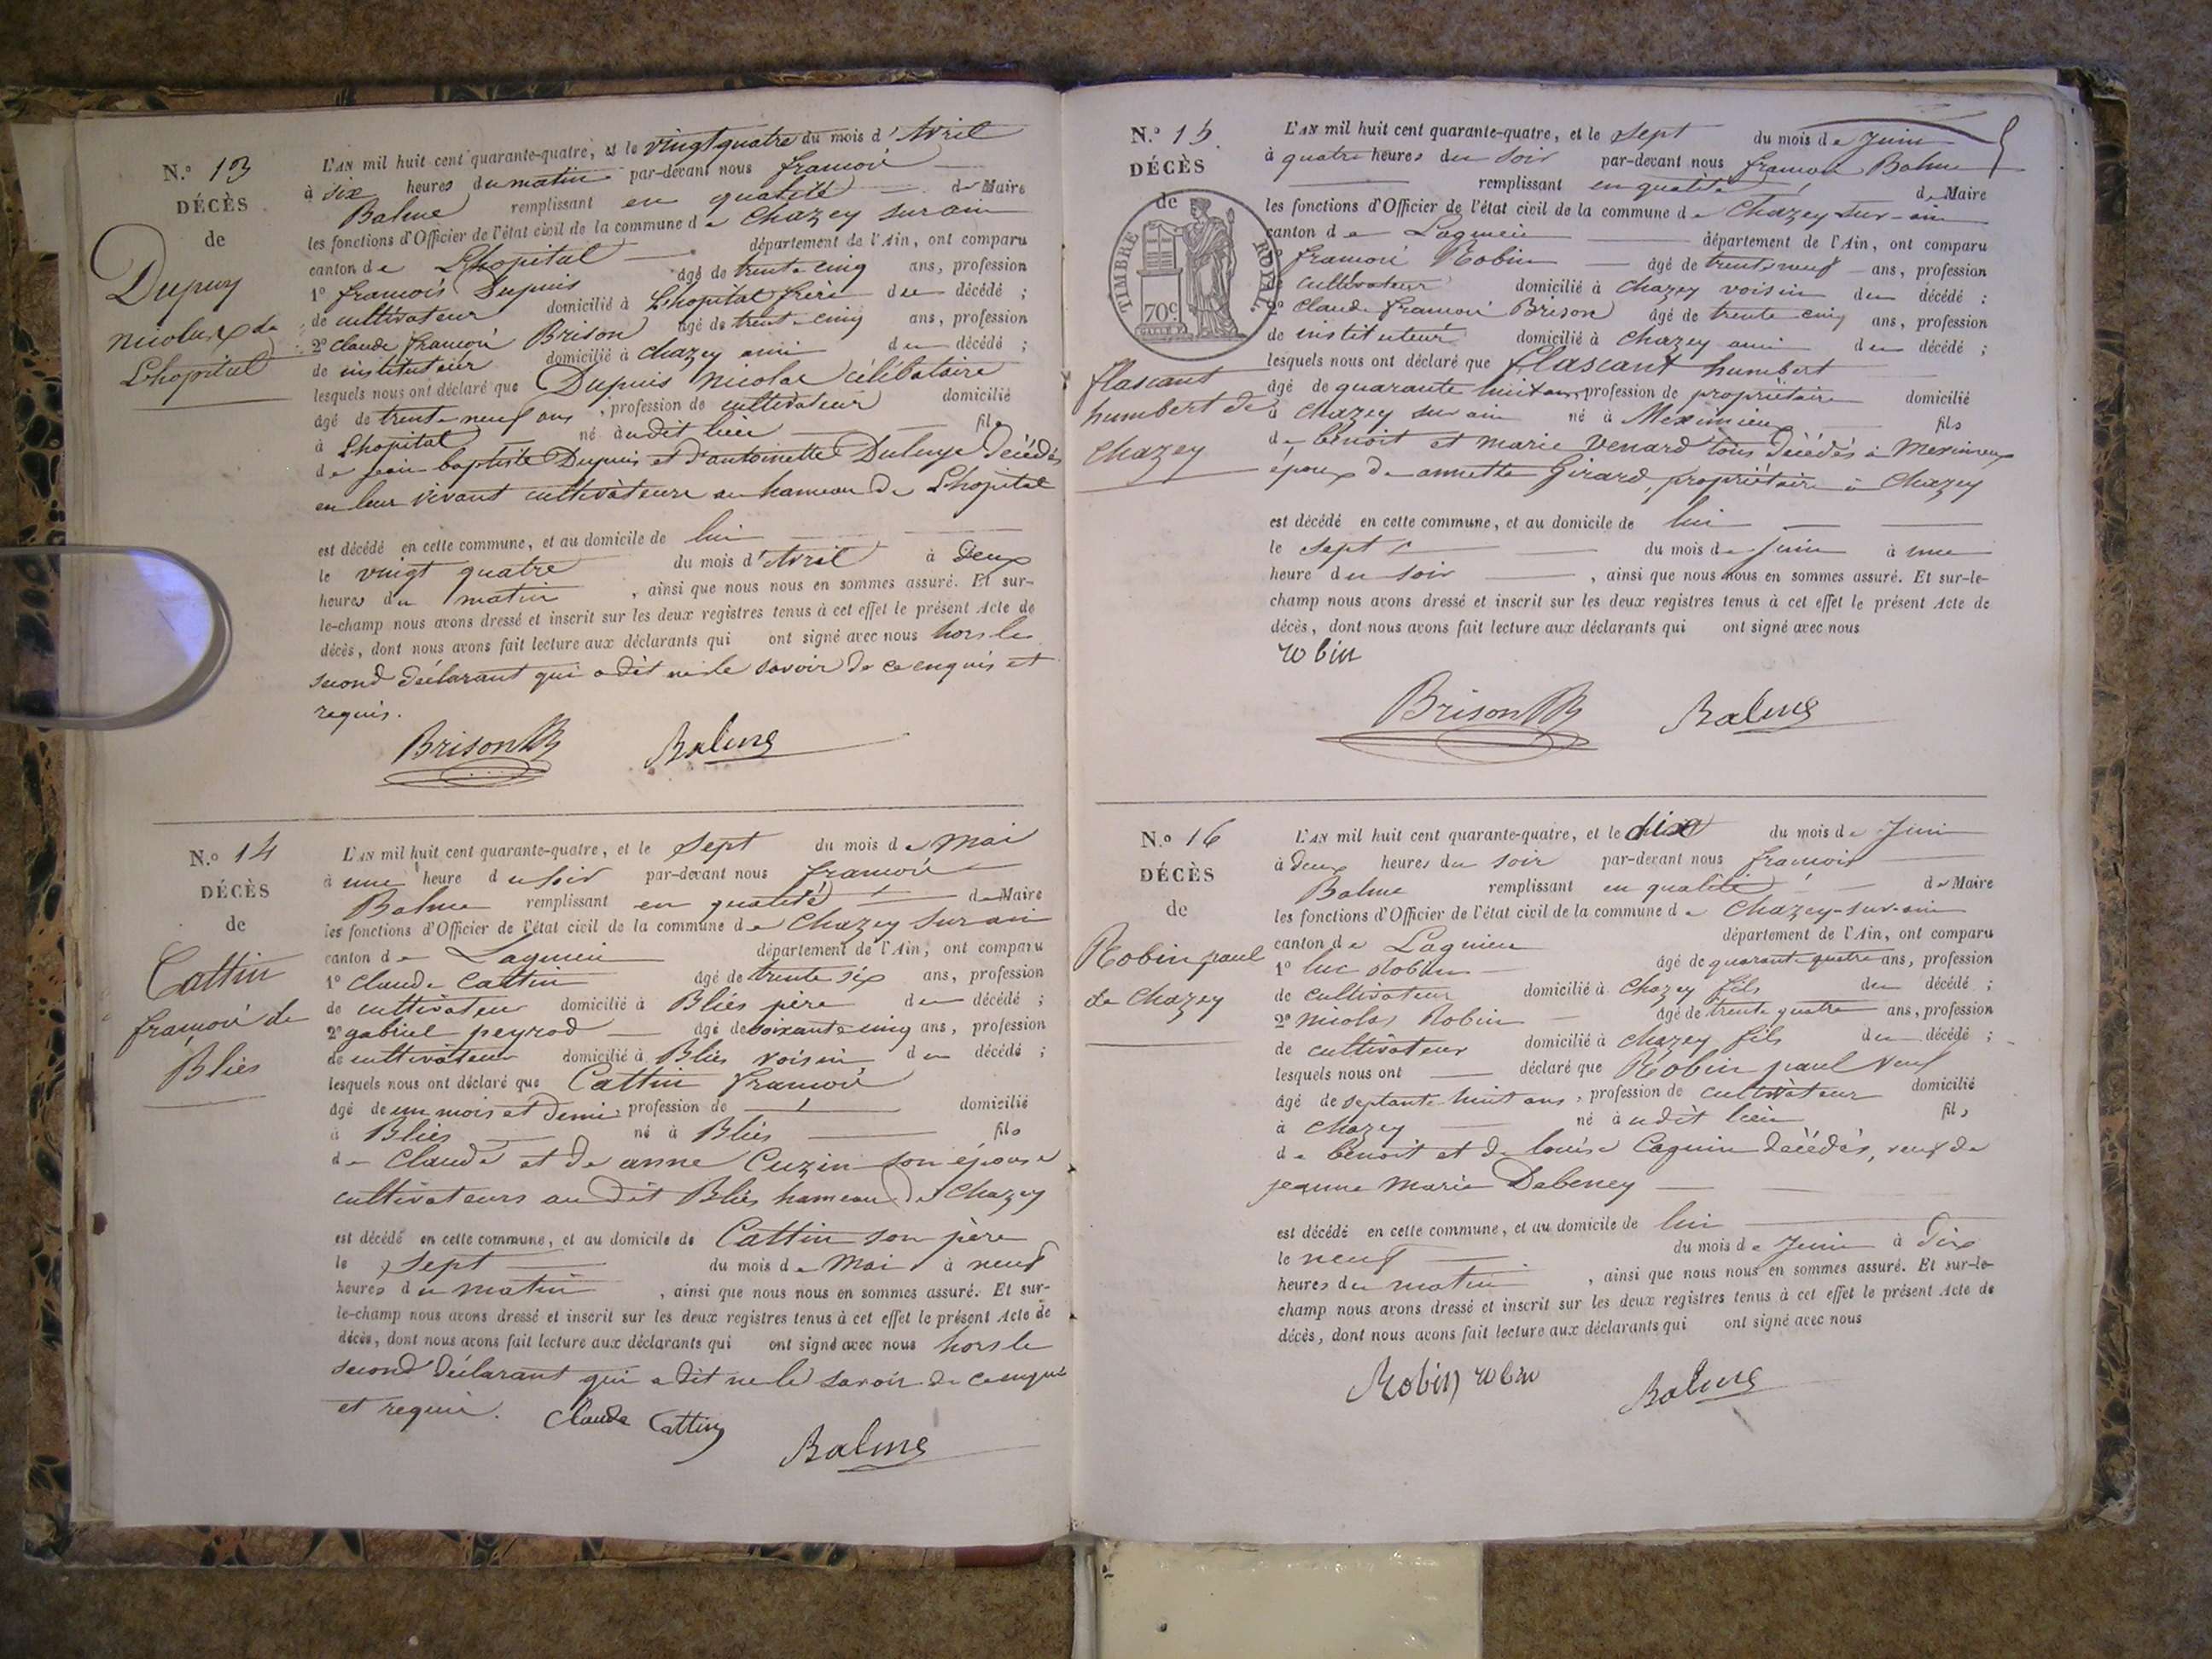 N.° 13
DÉCÈS
de
Dupuy
nicolas de
Lhopital
L'AN mil huit cent quarante-quatre, et le vingt quatre du mois d'Avril
à six heures du matin par-devant nous françois
Balme remplissant en qualité de Maire
les fonctions d'Officier de l'état civil de la commune de Chazey sur ain
canton de Lhopital département de l'Ain, ont comparu
1° françois Dupuis âgé de trente cinq ans, profession
de cultivateur domicilié à Lhopital frère du décédé ;
2° claude françois Brison âgé de trente cinq ans, profession
de instituteur domicilié à chazey ami du décédé ;
lesquels nous ont déclaré que Dupuis nicolas célibataire
âgé de trente neuf ans, profession de cultivateur domicilié
à Lhopital né audit lieu fils
de jean baptiste Dupuis et d'antoinette décédés
en leur vivant cultivateurs au hameau de Lhopital
est décédé en cette commune, et au domicile de lui
le vingt quatre du mois d'Avril à Deux
heures du matin, ainsi que nous nous en sommes assuré. Et sur-
le-champ nous avons dressé et inscrit sur les deux registres tenus à cet effet le présent Acte de
décès, dont nous avons fait lecture aux déclarants qui ont signé avec nous hors le
second déclarant qui a dit ne le savoir de ce enquis et
requis.
Brison B Balme
N.° 14
DÉCÈS
de
Cattin
françois de
Bliès
L'AN mil huit cent quarante-quatre, et le sept du mois de mai
à une heure du soir par-devant nous françois
Balme remplissant en qualité de Maire
les fonctions d'Officier de l'état civil de la commune de Chazey sur ain
canton de Lagnieu département de l'Ain, ont comparu
1° claude Cattin âgé de trente six ans, profession
de cultivateur domicilié à Bliès père du décédé ;
2° gabriel peyrod âgé de soixante cinq ans, profession
de cultivateur domicilié à Bliès voisin du décédé ;
lesquels nous ont déclaré que Cattin françois
âgé de un mois et demi profession de domicilié
à Bliès né à Bliès fils
de Claude et de anne Cuzin son épouse
cultivateurs au dit Bliès hameau de Chazey
est décédé en cette commune, et au domicile de Cattin son père
le sept du mois de Mai à neuf
heures du matin, ainsi que nous nous en sommes assuré. Et sur-
le-champ nous avons dressé et inscrit sur les deux registres tenus à cet effet le présent Acte de
décès, dont nous avons fait lecture aux déclarants qui ont signé avec nous hors le
second déclarant qui a dit ne le savoir de ce enquis
et requis. Claude Cattin
Balme
N.° 15
DÉCÈS
de
TIMBRE ROYAL
70c
flascant
humbert de
Chazey
L'AN mil huit cent quarante-quatre, et le sept du mois de Juin
à quatre heures du soir par-devant nous françois Balme
remplissant en qualité de Maire
les fonctions d'Officier de l'état civil de la commune de Chazey sur-ain
canton de Lagnieu département de l'Ain, ont comparu
1° françois Robin âgé de trente neuf ans, profession
de cultivateur domicilié à chazey voisin du décédé ;
2° claude françois Brison âgé de trente cinq ans, profession
de instituteur domicilié à chazey ami du décédé ;
lesquels nous ont déclaré que flascant humbert
âgé de quarante huit ans, profession de propriétaire domicilié
à chazey sur ain né à Meximieu fils
de Benoit et marie Venard tous décédés à Meximieux
époux de annette Girard, propriétaire à Chazey
est décédé en cette commune, et au domicile de lui
le sept du mois de Juin à une
heure du soir, ainsi que nous nous en sommes assuré. Et sur-le-
champ nous avons dressé et inscrit sur les deux registres tenus à cet effet le présent Acte de
décès, dont nous avons fait lecture aux déclarants qui ont signé avec nous
robin
Brison B Balme
N.° 16
DÉCÈS
de
Robin paul
de Chazey
L'AN mil huit cent quarante-quatre, et le dix du mois de Juin
à deux heures du soir par-devant nous françois
Balme remplissant en qualité de Maire
les fonctions d'Officier de l'état civil de la commune de Chazey-sur-ain
canton de Lagnieu département de l'Ain, ont comparu
1° luc Robin âgé de quarante quatre ans, profession
de cultivateur domicilié à Chazey fils du décédé ;
2° nicolas Robin âgé de trente quatre ans, profession
de cultivateur domicilié à chazey fils du décédé ;
lesquels nous ont déclaré que Robin paul veuf
âgé de septante huit ans, profession de cultivateur domicilié
à Chazey né audit lieu fils
de Benoit et de louise Caguin décédés, veuf de
jeanne Marie Debeney
est décédé en cette commune, et au domicile de lui
le neuf du mois de Juin à Dix
heures du matin, ainsi que nous nous en sommes assuré. Et sur-le-
champ nous avons dressé et inscrit sur les deux registres tenus à cet effet le présent Acte de
décès, dont nous avons fait lecture aux déclarants qui ont signé avec nous
Robin robin Balme